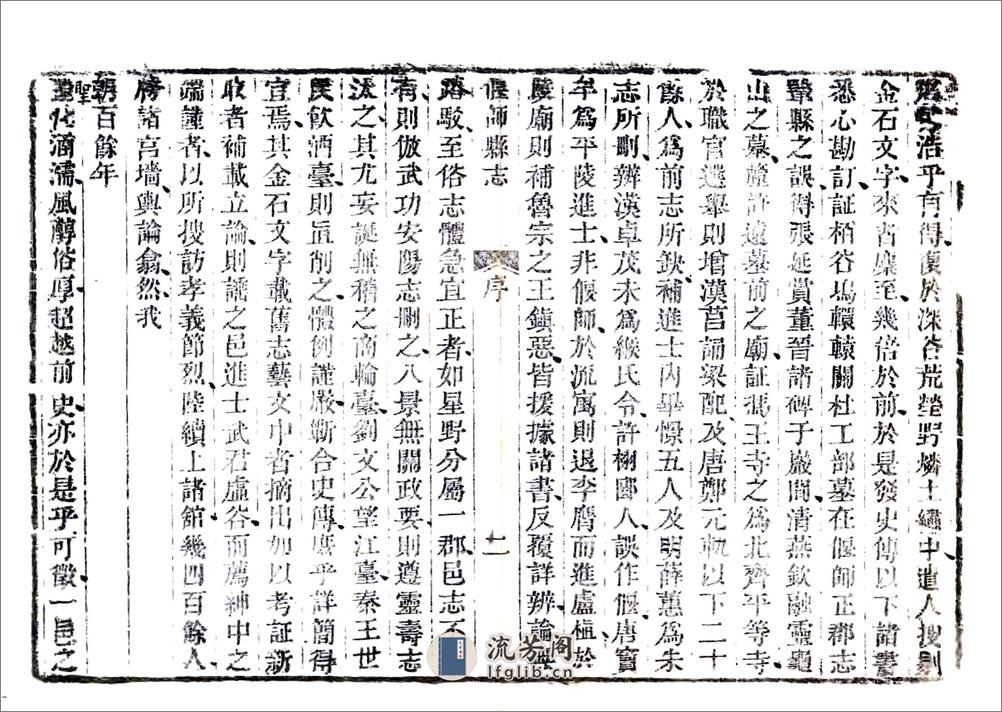 浩乎有得復於深谷荒塋野燐土繡中遣人搜剔
金石文字來者麇至幾倍於前於是發史傳以下諸書
悉心勘訂証栢谷塢轘轅關杜工部墓在偃師正郡志
鞏縣之誤得張延賞董晉諸碑于巖間清燕欽融靈龜
山之墓麓許遠墓前之廟証馮王寺之爲北齊平等寺
於職官選舉則增漢莒誦梁配及唐鄭元軌以下二十
餘人爲前志所缺補進士內畢憬五人及明薛蕙爲朱
志所刪辨漢卓茂未爲緱氏令許栩郾人誤作偃唐竇
牟爲平陵進士非偃師於流寓則退李膺而進盧植於
陵廟則補魯宗之王鎮惡皆援據諸書反覆詳辨論無
偃師縣志 序
踳駁至俗志體急宜正者如星野分屬一郡邑志不
有則倣武功安陽志刪之八景無關政要則遵靈壽志
汰之其尤妄誕無稽之商輪臺劉文公望江臺秦王世
民飲酒臺則直削之體例謹嚴斬合史傳庶乎詳簡得
宜焉其金石文字載舊志藝文中者摘出加以考証新
收者補載立論則謡之邑進士武君虛谷而薦紳中之
端謹者以所搜訪孝義節烈陸續上諸館幾四百餘人
牓諸宮墻輿論翕然我
朝百餘年
聖化涵濡風醇俗厚超越前史亦於是乎可徵一邑之
流芳阁
lfglib.cn